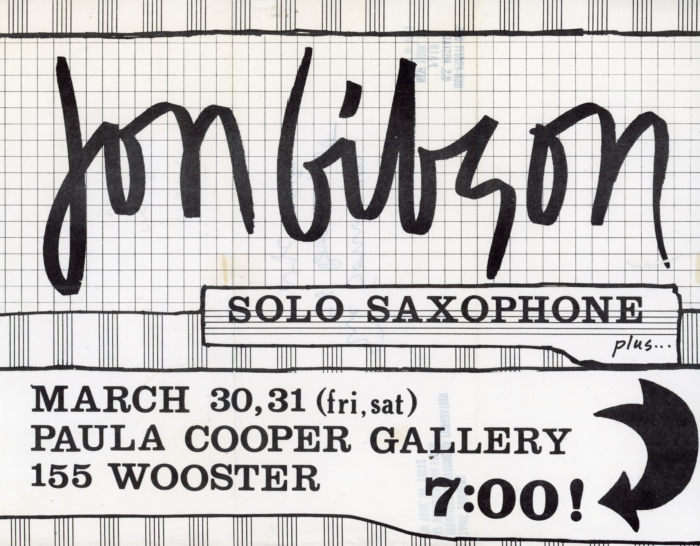 Jon Gibson
SOLO SAXOPHONE
plus...
MARCH 30, 31 (fri, sat)
PAULA COOPER GALLERY
155 WOOSTER
7:00!